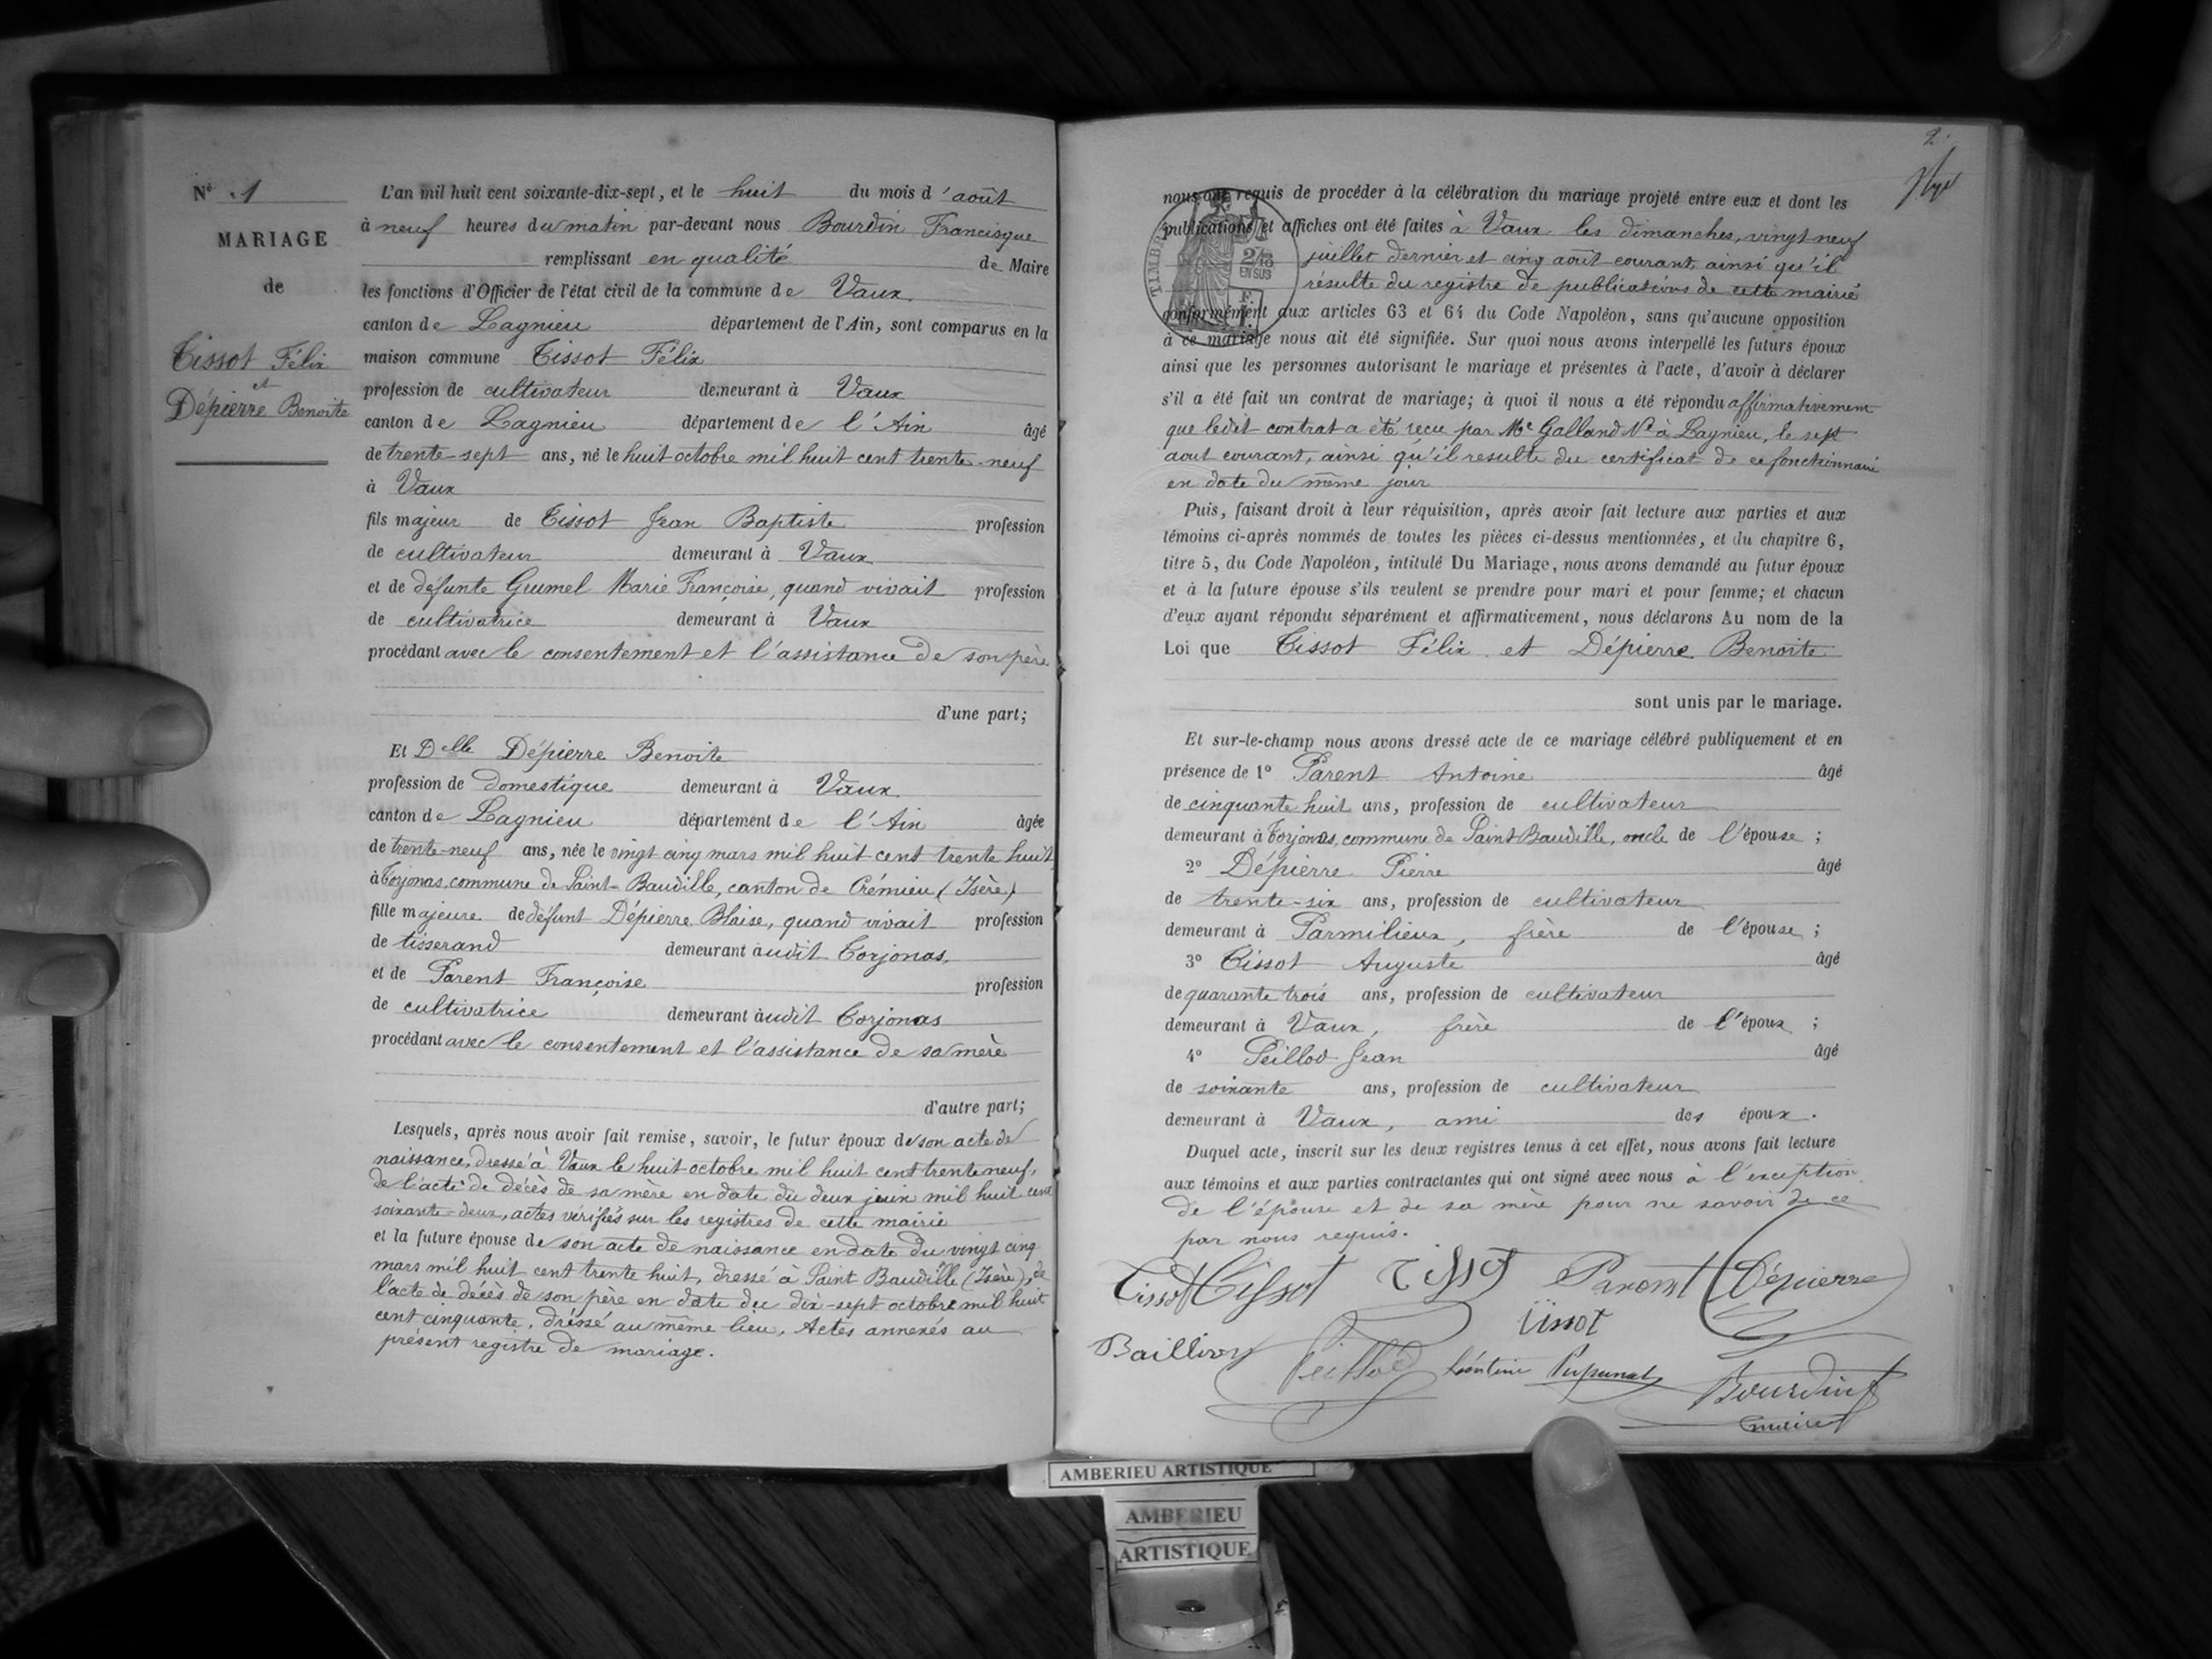 N° 1
MARIAGE
de
Tissot Félix
et
Dépierre Benoite
L'an mil huit cent soixante-dix-sept, et le huit du mois d'août
à neuf heures du matin par-devant nous Bourdin Francisque
remplissant en qualité de Maire
les fonctions d'Officier de l'état civil de la commune de Vaux
canton de Lagnieu département de l'Ain, sont comparus en la
maison commune Tissot Félix
profession de cultivateur demeurant à Vaux
canton de Lagnieu département de l'Ain âgé
de trente-sept ans, né le huit octobre mil huit cent trente-neuf
à Vaux
fils majeur de Tissot Jean Baptiste profession
de cultivateur demeurant à Vaux
et de défunte Grumel Marie Françoise, quand vivait profession
de cultivatrice demeurant à Vaux
procédant avec le consentement et l'assistance de son père
d'une part;
Et Delle Dépierre Benoite
profession de domestique demeurant à Vaux
canton de Lagnieu département de l'Ain âgée
de trente-neuf ans, née le vingt cinq mars mil huit cent trente huit
à Torjonas, commune de Saint-Baudille, canton de Crémieu (Isère)
fille majeure de défunt Dépierre Blaise, quand vivait profession
de tisserand demeurant audit Torjonas,
et de Parent Françoise profession
de cultivatrice demeurant audit Torjonas
procédant avec le consentement et l'assistance de sa mère
d'autre part;
Lesquels, après nous avoir fait remise, savoir, le futur époux de son acte de
naissance, dressé à Vaux le huit octobre mil huit cent trente neuf,
de l'acte de décès de sa mère en date du deux juin mil huit cent
soixante-deux, actes vérifiés sur les registres de cette mairie
et la future épouse de son acte de naissance en date du vingt cinq
mars mil huit cent trente huit, dressé à Saint Baudille (Isère), de
l'acte de décès de son père en date du dix-sept octobre mil huit
cent cinquante, dressé au même lieu, Actes annexés au
présent registre de mariage.
2.
nous ont requis de procéder à la célébration du mariage projeté entre eux et dont les
publications et affiches ont été faites à Vaux les dimanches, vingt neuf
juillet dernier et cinq août courant ainsi qu'il
résulte du registre de publications de cette mairie
conformément aux articles 63 et 64 du Code Napoléon, sans qu'aucune opposition
à ce mariage nous ait été signifiée. Sur quoi nous avons interpellé les futurs époux
ainsi que les personnes autorisant le mariage et présentes à l'acte, d'avoir à déclarer
s'il a été fait un contrat de mariage; à quoi il nous a été répondu affirmativement
que ledit contrat a été reçu par Me Galland Nre à Lagnieu, le sept
aout courant, ainsi qu'il resulte du certificat de ce fonctionnaire
en date du même jour
Puis, faisant droit à leur réquisition, après avoir fait lecture aux parties et aux
témoins ci-après nommés de toutes les pièces ci-dessus mentionnées, et du chapitre 6,
titre 5, du Code Napoléon, intitulé Du Mariage, nous avons demandé au futur époux
et à la future épouse s'ils veulent se prendre pour mari et pour femme; et chacun
d'eux ayant répondu séparément et affirmativement, nous déclarons Au nom de la
Loi que Tissot Félix et Dépierre Benoite
sont unis par le mariage.
Et sur-le-champ nous avons dressé acte de ce mariage célébré publiquement et en
présence de 1° Parent Antoine âgé
de cinquante huit ans, profession de cultivateur
demeurant à Torjonas, commune de Saint Baudille, oncle de l'épouse ;
2° Dépierre Pierre âgé
de trente-six ans, profession de cultivateur
demeurant à Parmilieux, frère de l'épouse ;
3° Tissot Auguste âgé
de quarante trois ans, profession de cultivateur
demeurant à Vaux, frère de l'époux ;
4° Peillod Jean âgé
de soixante ans, profession de cultivateur
demeurant à Vaux, ami des époux.
Duquel acte, inscrit sur les deux registres tenus à cet effet, nous avons fait lecture
aux témoins et aux parties contractantes qui ont signé avec nous à l'exception
de l'épouse et de sa mère pour ne savoir de ce
par nous requis.
Tissot Tissot Tissot Paront Dépierre
Tissot
Baillivy Peillod Léontine Pupunat Bourdin
maire
TIMBRE
2/10
EN SUS
AMBERIEU ARTISTIQUE
AMBERIEU
ARTISTIQUE